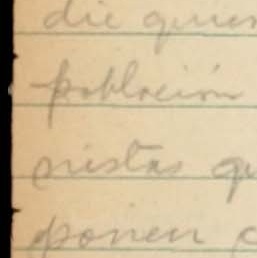 die quier
población
nistas q
ponen c